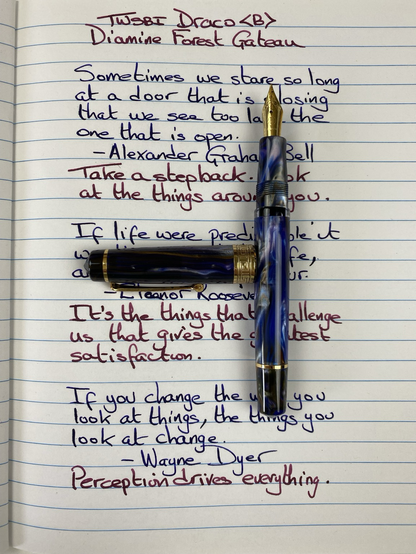 TWSBI Draco <B>
Diamine Forest Gateau
Sometimes we stare so long
at a door that is closing
that we see too late the
one that is open.
- Alexander Graham Bell
Take a step back. Look
at the things around you.
If life were predictable it
- Eleanor Roosevelt
It's the things that challenge
us that gives the greatest
satisfaction.
If you change the way you
look at things, the things you
look at change.
- Wayne Dyer
Perception drives everything.